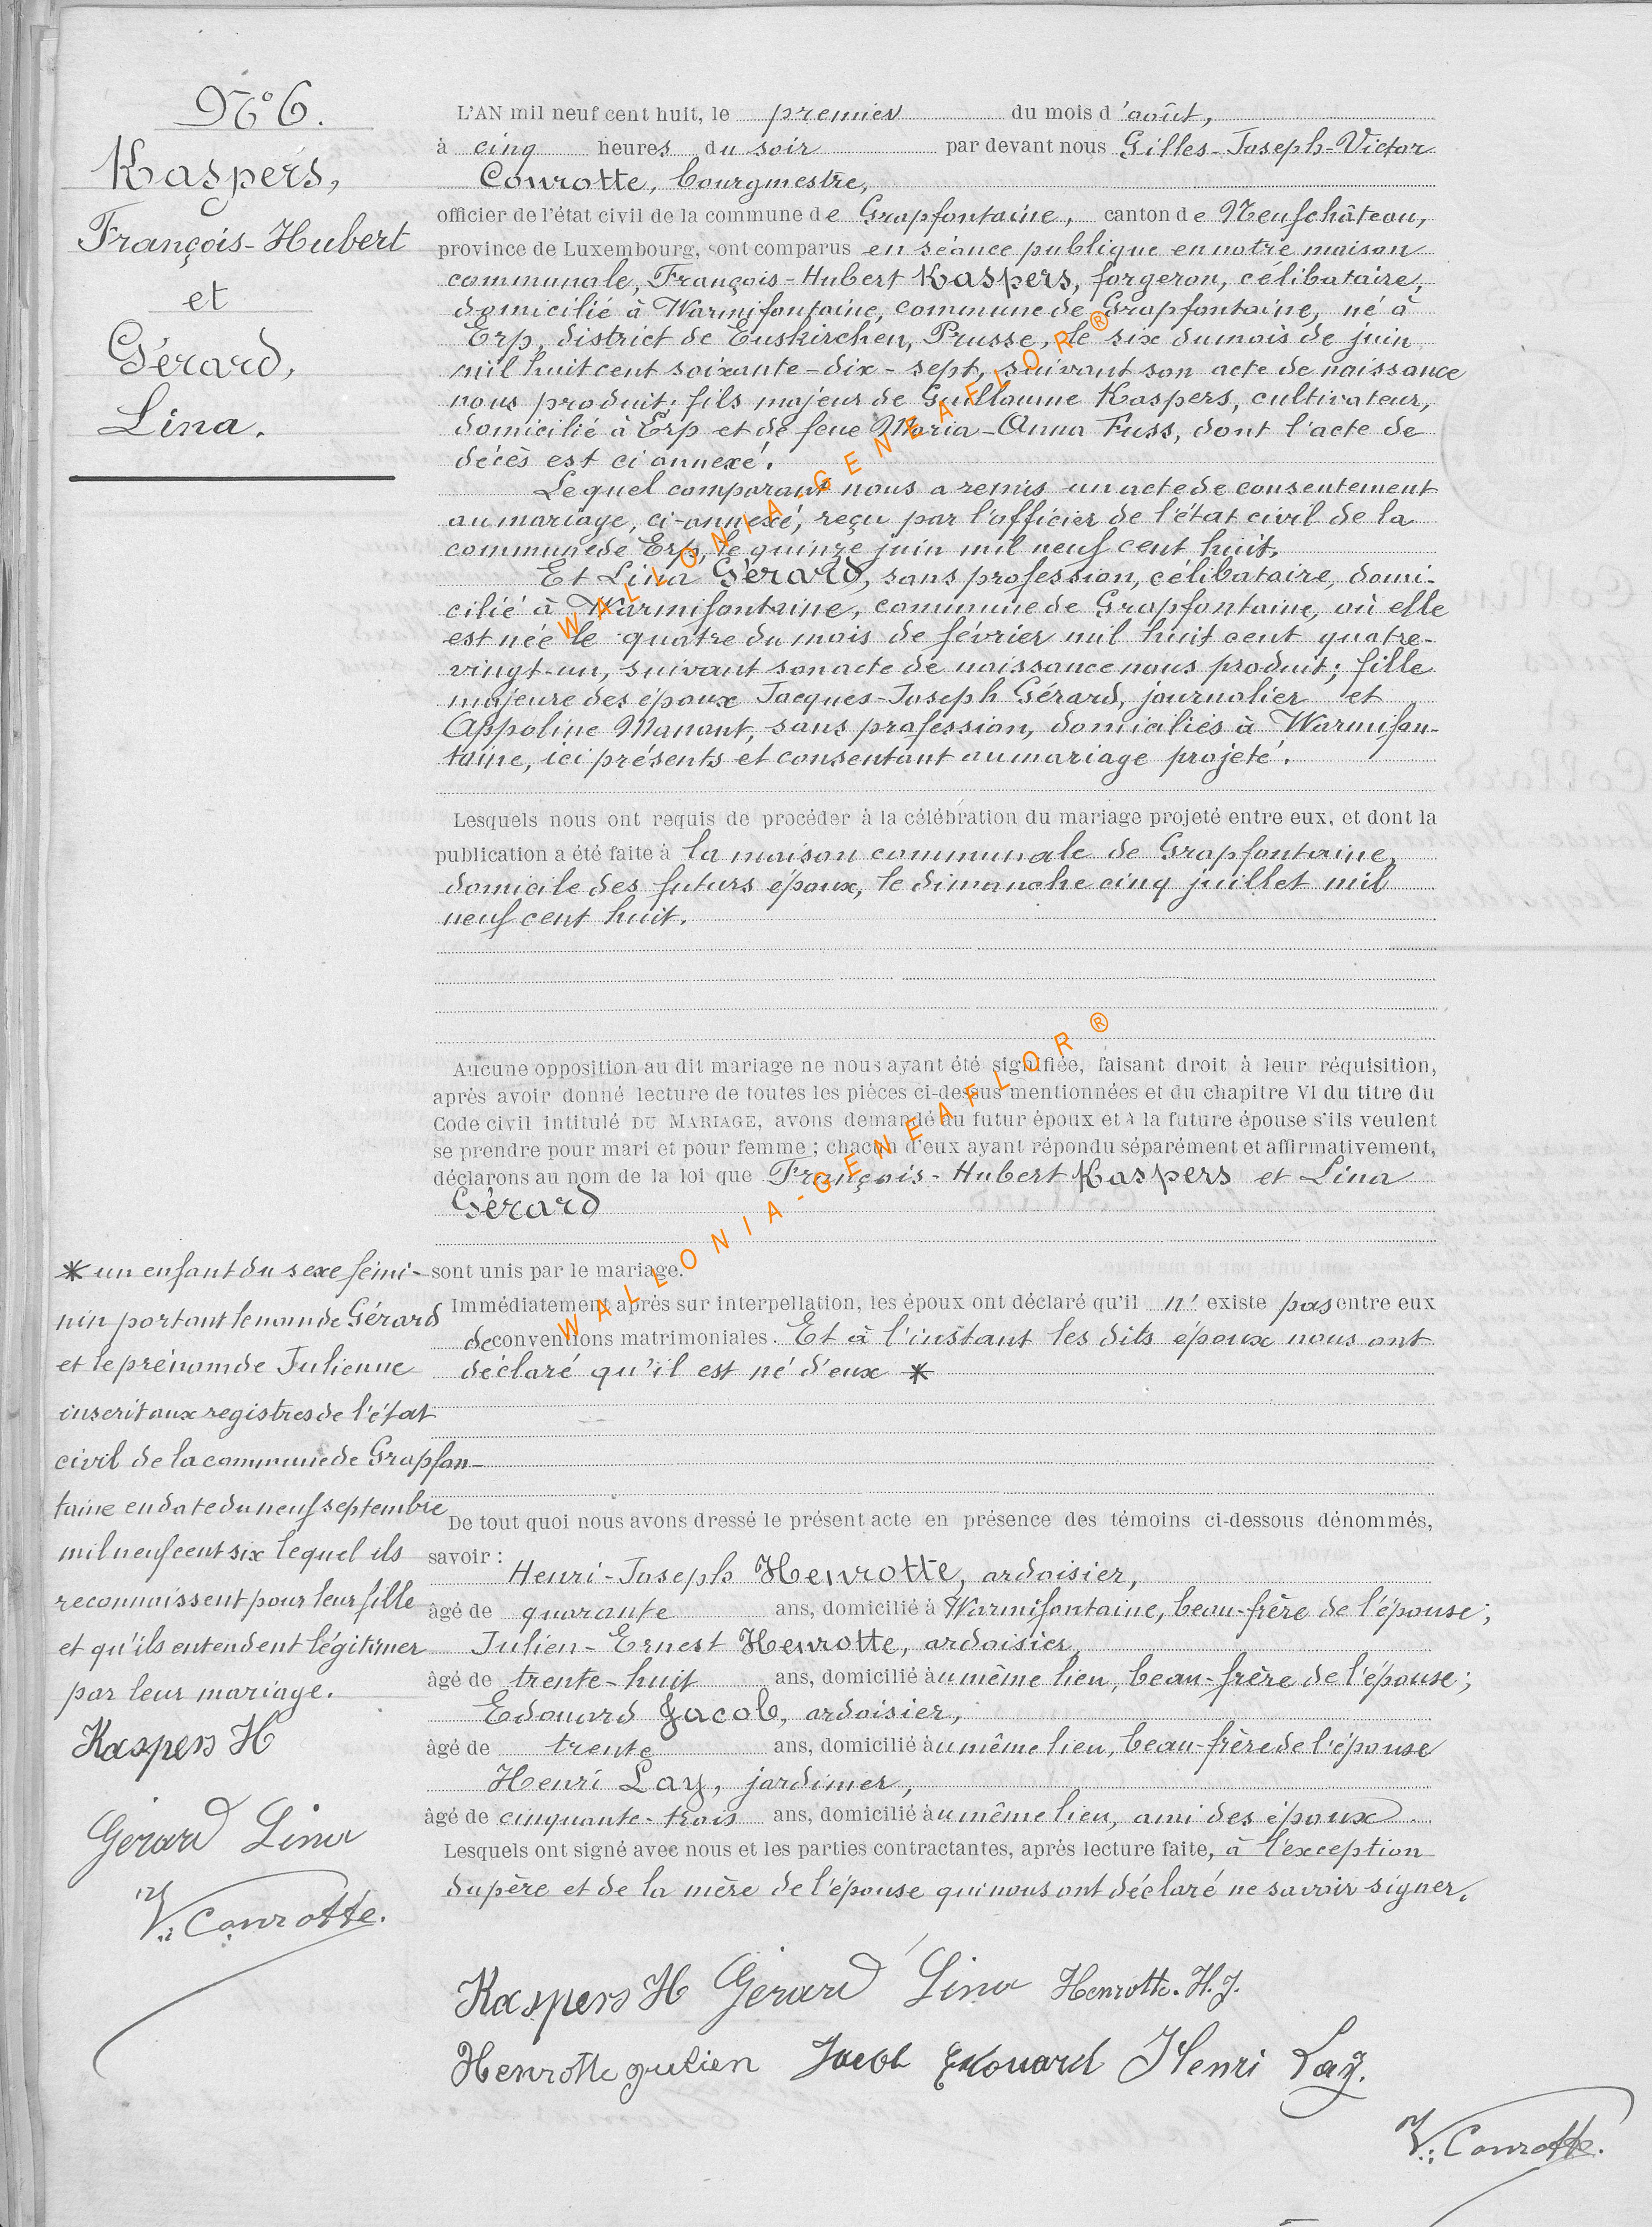 N° 6.
Kaspers,
François-Hubert
et
Gérard,
Lina.
L'AN mil neuf cent huit, le premier du mois d'août,
à cinq heures du soir par devant nous Gilles-Joseph-Victor
Conrotte, bourgmestre,
officier de l'état civil de la commune de Grapfontaine, canton de Neufchâteau,
province de Luxembourg, sont comparus en séance publique en notre maison
communale, François-Hubert Kaspers, forgeron, célibataire,
domicilié à Warmifontaine, commune de Grapfontaine, né à
Erp, district de Euskirchen, Prusse, le six du mois de juin
mil huit cent soixante-dix-sept, suivant son acte de naissance
nous produit; fils majeur de Guillaume Kaspers, cultivateur,
domicilié à Erp et de feue Maria-Anna Fuss, dont l'acte de
décès est ci annexé.
Lequel comparant nous a remis un acte de consentement
au mariage, ci-annexé, reçu par l'officier de l'état civil de la
commune de Erp, le quinze juin mil neuf cent huit.
Et Lina Gérard, sans profession, célibataire, domi-
cilié à Warmifontaine, commune de Grapfontaine, où elle
est née le quatre du mois de février mil huit cent quatre-
vingt-un, suivant son acte de naissance nous produit; fille
majeure des époux Jacques-Joseph Gérard, journalier et
Appoline Manant, sans profession, domiciliés à Warmifon-
taine, ici présents et consentant au mariage projeté.
Lesquels nous ont requis de procéder à la célébration du mariage projeté entre eux, et dont la
publication a été faite à la maison communale de Grapfontaine,
domicile des futurs époux, le dimanche cinq juillet mil
neuf cent huit.
Aucune opposition au dit mariage ne nous ayant été signifiée, faisant droit à leur réquisition,
après avoir donné lecture de toutes les pièces ci-dessus mentionnées et du chapitre VI du titre du
Code civil intitulé DU MARIAGE, avons demandé au futur époux et à la future épouse s'ils veulent
se prendre pour mari et pour femme ; chacun d'eux ayant répondu séparément et affirmativement,
déclarons au nom de la loi que François-Hubert Kaspers et Lina
Gérard
sont unis par le mariage.
Immédiatement après sur interpellation, les époux ont déclaré qu'il n' existe pas entre eux
de conventions matrimoniales. Et à l'instant les dits époux nous ont
déclaré qu'il est né d'eux *
* un enfant du sexe fémi-
nin portant le nom de Gérard
et le prénom de Julienne
inscrit aux registres de l'état
civil de la commune de Grapfon-
taine en date du neuf septembre
mil neuf cent six lequel ils
reconnaissent pour leur fille
et qu'ils entendent légitimer
par leur mariage.
Kaspers H
Gérard Lina
V. Conrotte.
De tout quoi nous avons dressé le présent acte en présence des témoins ci-dessous dénommés,
savoir :
Henri-Joseph Henrotte, ardoisier,
âgé de quarante ans, domicilié à Warmifontaine, beau-frère de l'épouse;
Julien-Ernest Henrotte, ardoisier,
âgé de trente-huit ans, domicilié àu même lieu, beau-frère de l'épouse;
Edouard Jacob, ardoisier,
âgé de trente ans, domicilié àu même lieu, beau-frère de l'épouse
Henri Lay, jardinier,
âgé de cinquante-trois ans, domicilié àu même lieu, ami des époux.
Lesquels ont signé avec nous et les parties contractantes, après lecture faite, à l'exception
du père et de la mère de l'épouse qui nous ont déclaré ne savoir signer.
Kaspers H Gérard Lina Henrotte. H. J.
Henrotte julien Jacob Edouard Henri Lay.
V. Conrotte.
WALLONIA-GENEAFLOR®
WALLONIA-GENEAFLOR®